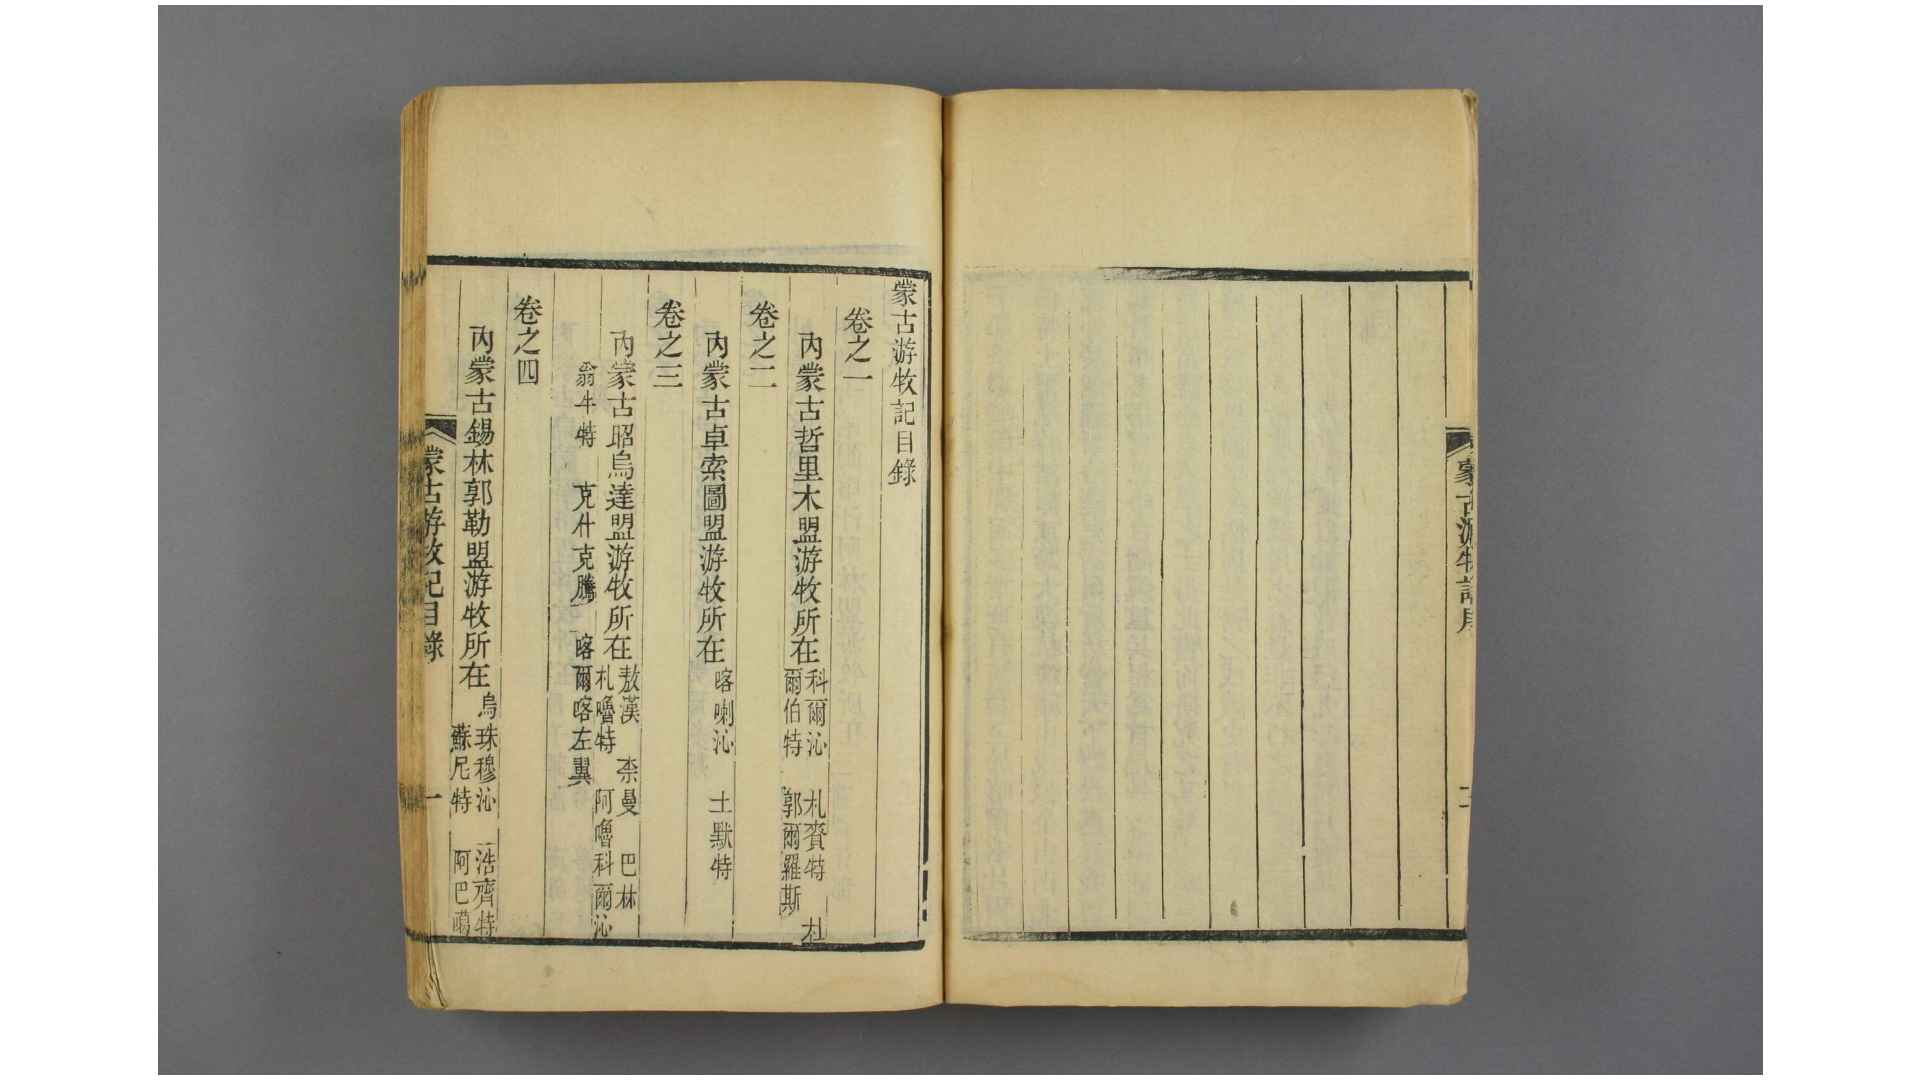 蒙古游牧記序
二
蒙古游牧記目錄
卷之一
內蒙古哲里木盟游牧所在
科爾沁 札賚特 杜
爾伯特 郭爾羅斯
卷之二
內蒙古卓索圖盟游牧所在 喀喇沁 土默特
卷之三
內蒙古昭烏達盟游牧所在
敖漢 柰曼 巴林
札嚕特 阿嚕科爾沁
翁牛特 克什克騰 喀爾喀左翼
卷之四
內蒙古錫林郭勒盟游牧所在
烏珠穆沁 浩齊特
蘇尼特 阿巴噶
蒙古游牧記目錄
一